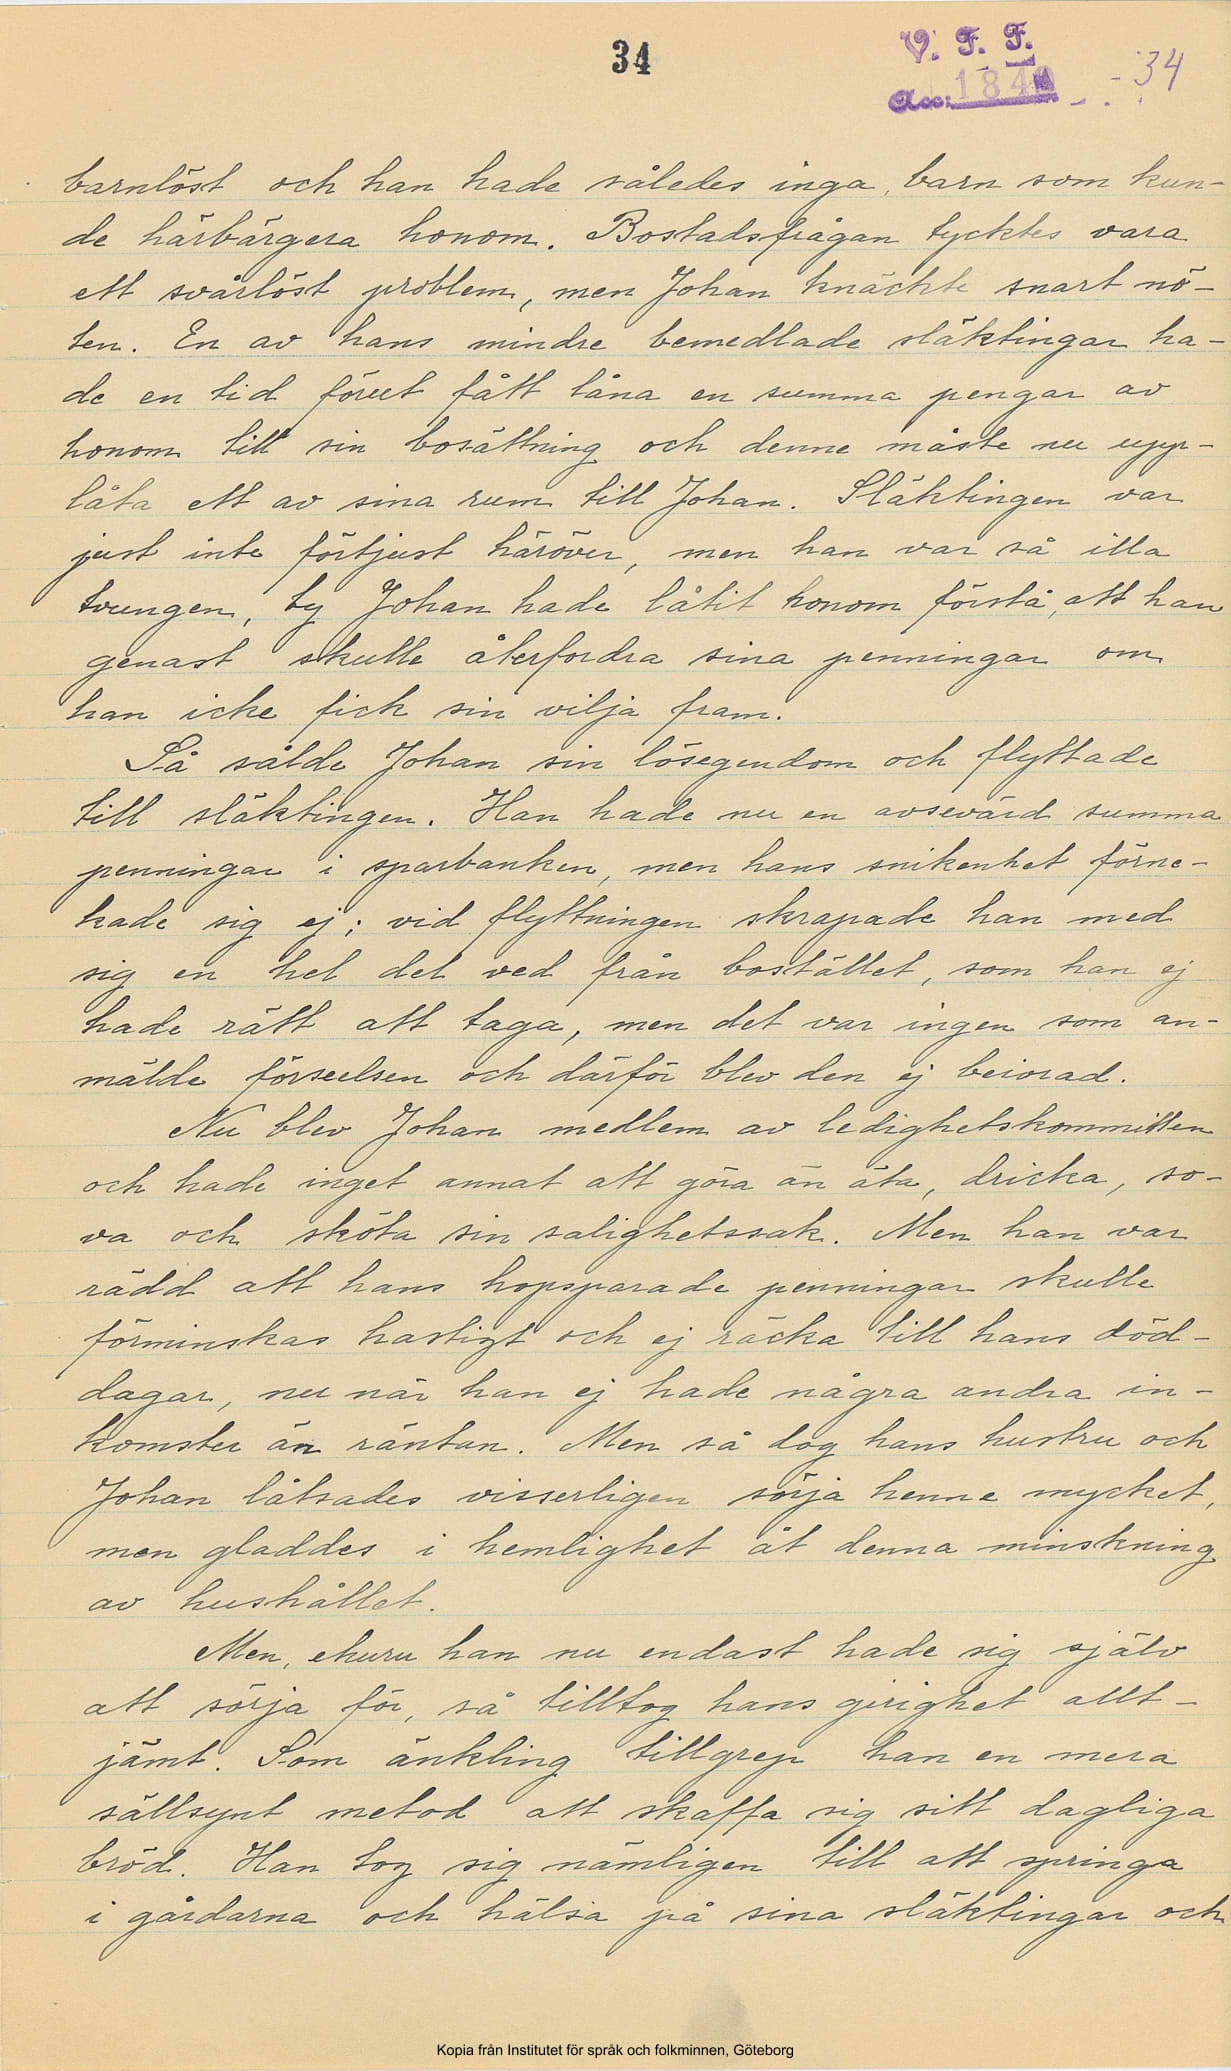 34
V. F. F.
Acc: 1840 - 34
barnlöst och han hade således inga barn som kun-
de härbärgera honom. Bostadsfrågan tycktes vara
ett svårlöst problem, men Johan knäckte snart nö-
ten. En av hans mindre bemedlade släktingar ha-
de en tid förut fått låna en summa pengar av
honom till sin bosättning och denne måste nu upp-
låta ett av sina rum till Johan. Släktingen var
just inte förtjust häröver, men han var så illa
tvungen, ty Johan hade låtit honom förstå, att han
genast skulle återfordra sina penningar om
han icke fick sin vilja fram.
Så sålde Johan sin lösegendom och flyttade
till släktingen. Han hade nu en avsevärd summa
penningar i sparbanken, men hans snikenhet förne-
kade sig ej; vid flyttningen skrapade han med
sig en hel del ved från bostället, som han ej
hade rätt att taga, men det var ingen som an-
mälde förseelsen och därför blev den ej beivrad.
Nu blev Johan medlem av ledighetskommitten
och hade inget annat att göra än äta, dricka, so-
va och sköta sin salighetssak. Men han var
rädd att hans hopsparade penningar skulle
förminskas hastigt och ej räcka till hans död-
dagar, nu när han ej hade några andra in-
komster än räntan. Men så dog hans hustru och
Johan låtsades visserligen sörja henne mycket,
men gladdes i hemlighet åt denna minskning
av hushållet.
Men, ehuru han nu endast hade sig själv
att sörja för, så tilltog hans girighet allt-
jämt. Som änkling tillgrep han en mera
sällsynt metod att skaffa sig sitt dagliga
bröd. Han tog sig nämligen till att springa
i gårdarna och hälsa på sina släktingar och
Kopia från Institutet för språk och folkminnen, Göteborg